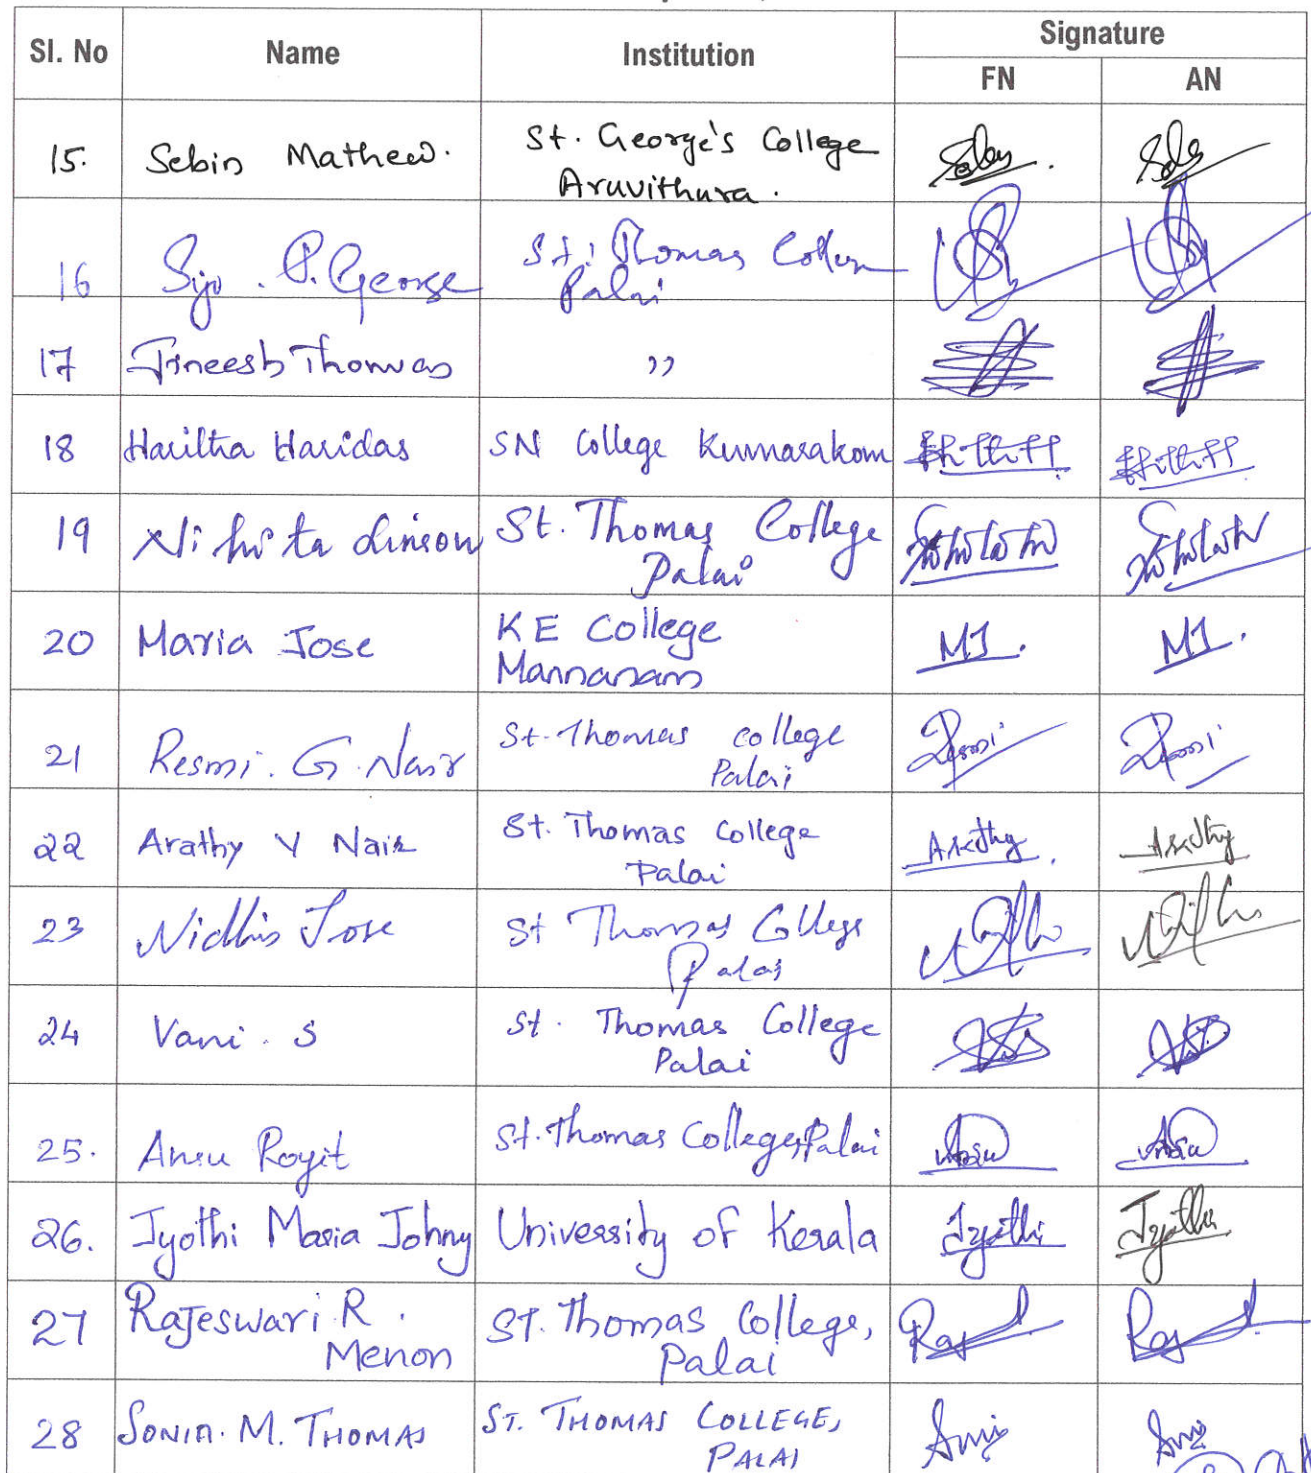 Sl. No Name Institution Signature
FN AN
15. Sebin Mathew. St. George's College
Aruvithura.
16 Sijo . P. George St. Thomas College
Palai
17 Jineesh Thomas ,,
18 Haritha Haridas SN College Kumarakom
19 Nikhita Linson St. Thomas College
Palai
20 Maria Jose KE College
Mannanam MJ. MJ.
21 Resmi. G. Nair St. Thomas college
Palai Resmi Resmi
22 Arathy V Nair St. Thomas College
Palai Arathy . Arathy
23 Nidhin Jose St Thomas College
Palai
24 Vani . S St. Thomas College
Palai
25. Ansu Royit St. Thomas College, Palai Ansu Ansu
26. Jyothi Maria Johny University of Kerala Jyothi Jyothi
27 Rajeswari R. St. Thomas College,
Menon Palai Raj Raj
28 SONIA. M. THOMAS ST. THOMAS COLLEGE,
PALAI